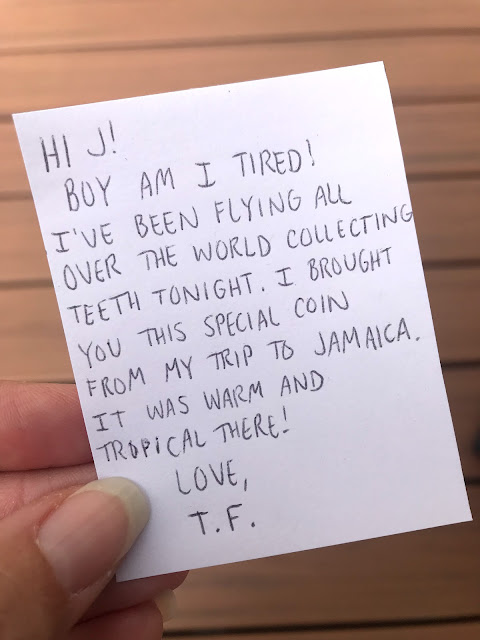 HI J!
BOY AM I TIRED!
I'VE BEEN FLYING ALL
OVER THE WORLD COLLECTING
TEETH TONIGHT. I BROUGHT
YOU THIS SPECIAL COIN
FROM MY TRIP TO JAMAICA.
IT WAS WARM AND
TROPICAL THERE!
LOVE,
T.F.